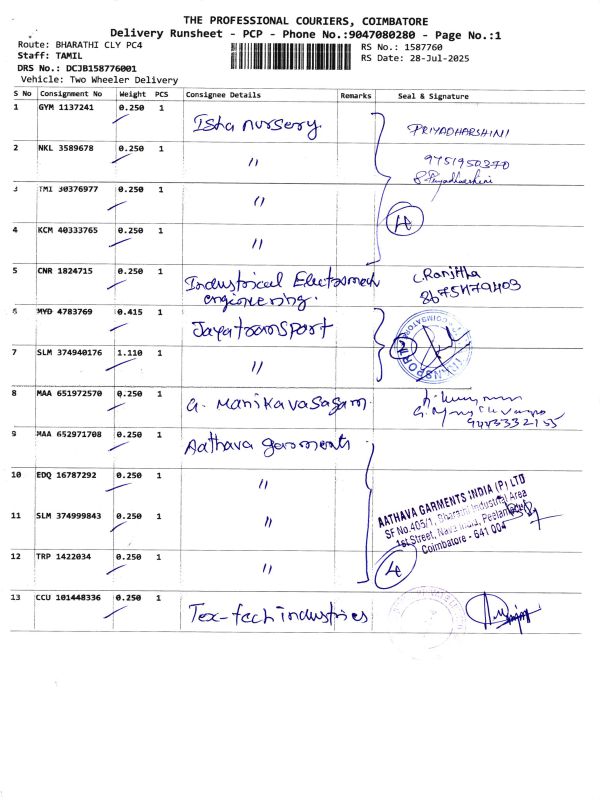 THE PROFESSIONAL COURIERS, COIMBATORE
Delivery Runsheet - PCP - Phone No.:9047080280 - Page No.:1
Route: BHARATHI CLY PC4
RS No.: 1587760
Staff: TAMIL
RS Date: 28-Jul-2025
DRS No.: DCJB158776001
Vehicle: Two Wheeler Delivery
S No Consignment No Weight PCS Consignee Details Remarks Seal & Signature
1 GYM 1137241 0.250 1 Isha nursery. PRIYADHARSHINI
2 NKL 3589678 0.250 1 " 9751950370
S. Priyadharshini
3 TMI 30376977 0.250 1 "
4
4 KCM 40333765 0.250 1 "
5 CNR 1824715 0.250 1 Industrical Electromech C. Ranjitha
engineering. 8675479409
6 MYD 4783769 0.415 1 Jayatransport
2
7 SLM 374940176 1.110 1 "
8 MAA 651972570 0.250 1 G. Manikavasagam.
9443332155
9 MAA 652971708 0.250 1 Aathava garments
10 EDQ 16787292 0.250 1 "
AATHAVA GARMENTS INDIA (P) LTD
SF No.405/1, Bharathi Industrial Area
11 SLM 374999843 0.250 1 "
1st Street, Nava India, Peelamedu
Coimbatore - 641 004
12 TRP 1422034 0.250 1 "
4
13 CCU 101448336 0.250 1 Tex-tech industries